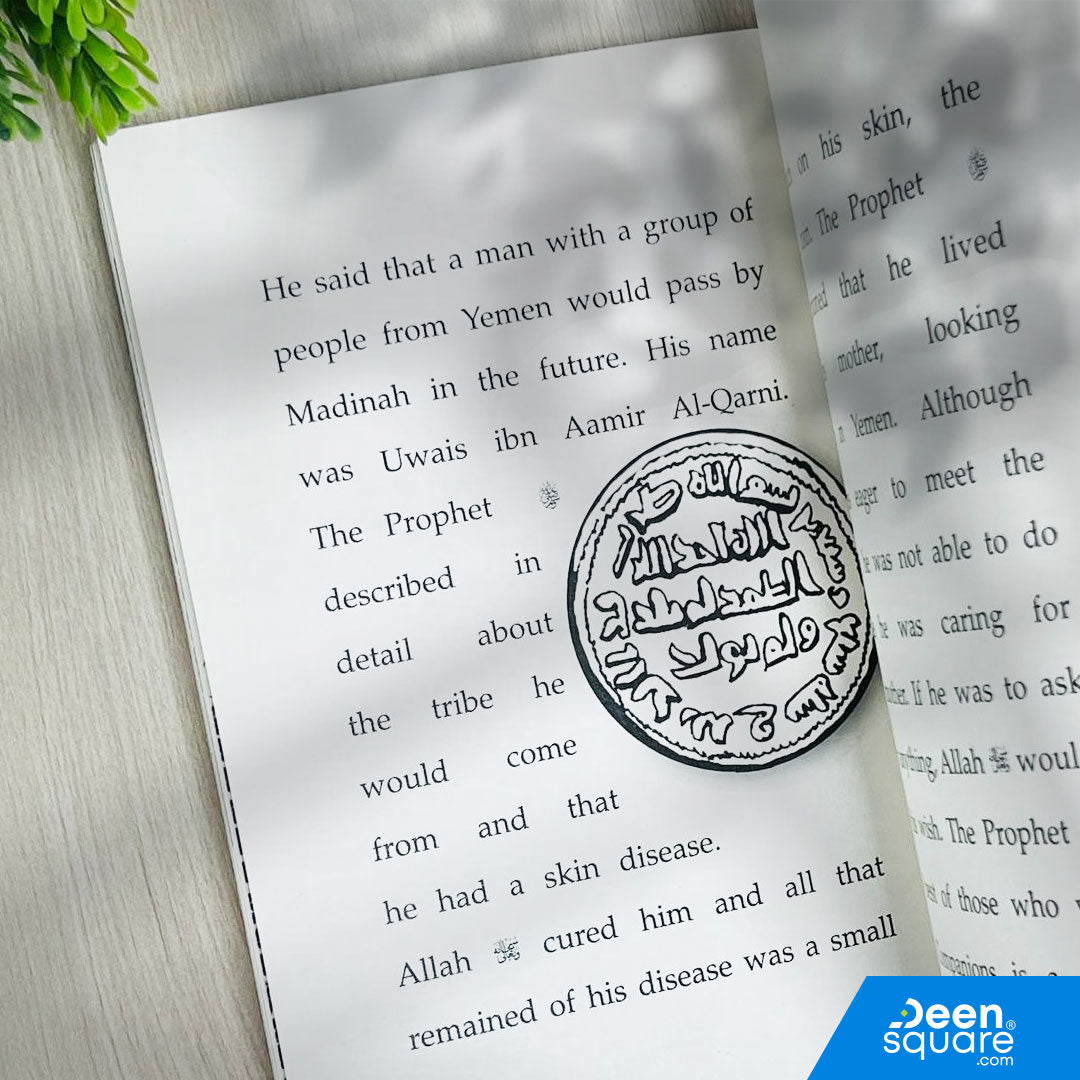 He said that a man with a group of
people from Yemen would pass by
Madinah in the future. His name
was Uwais ibn Aamir Al-Qarni.
The Prophet ﷺ
described in
detail about
the tribe he
would come
from and that
he had a skin disease.
Allah cured him and all that
remained of his disease was a small
on his skin, the
The Prophet ﷺ
that he lived
mother, looking
Yemen. Although
eager to meet the
was not able to do
he was caring for
If he was to ask
Allah
wish. The Prophet
of those who
is a
Deen®
square
.com